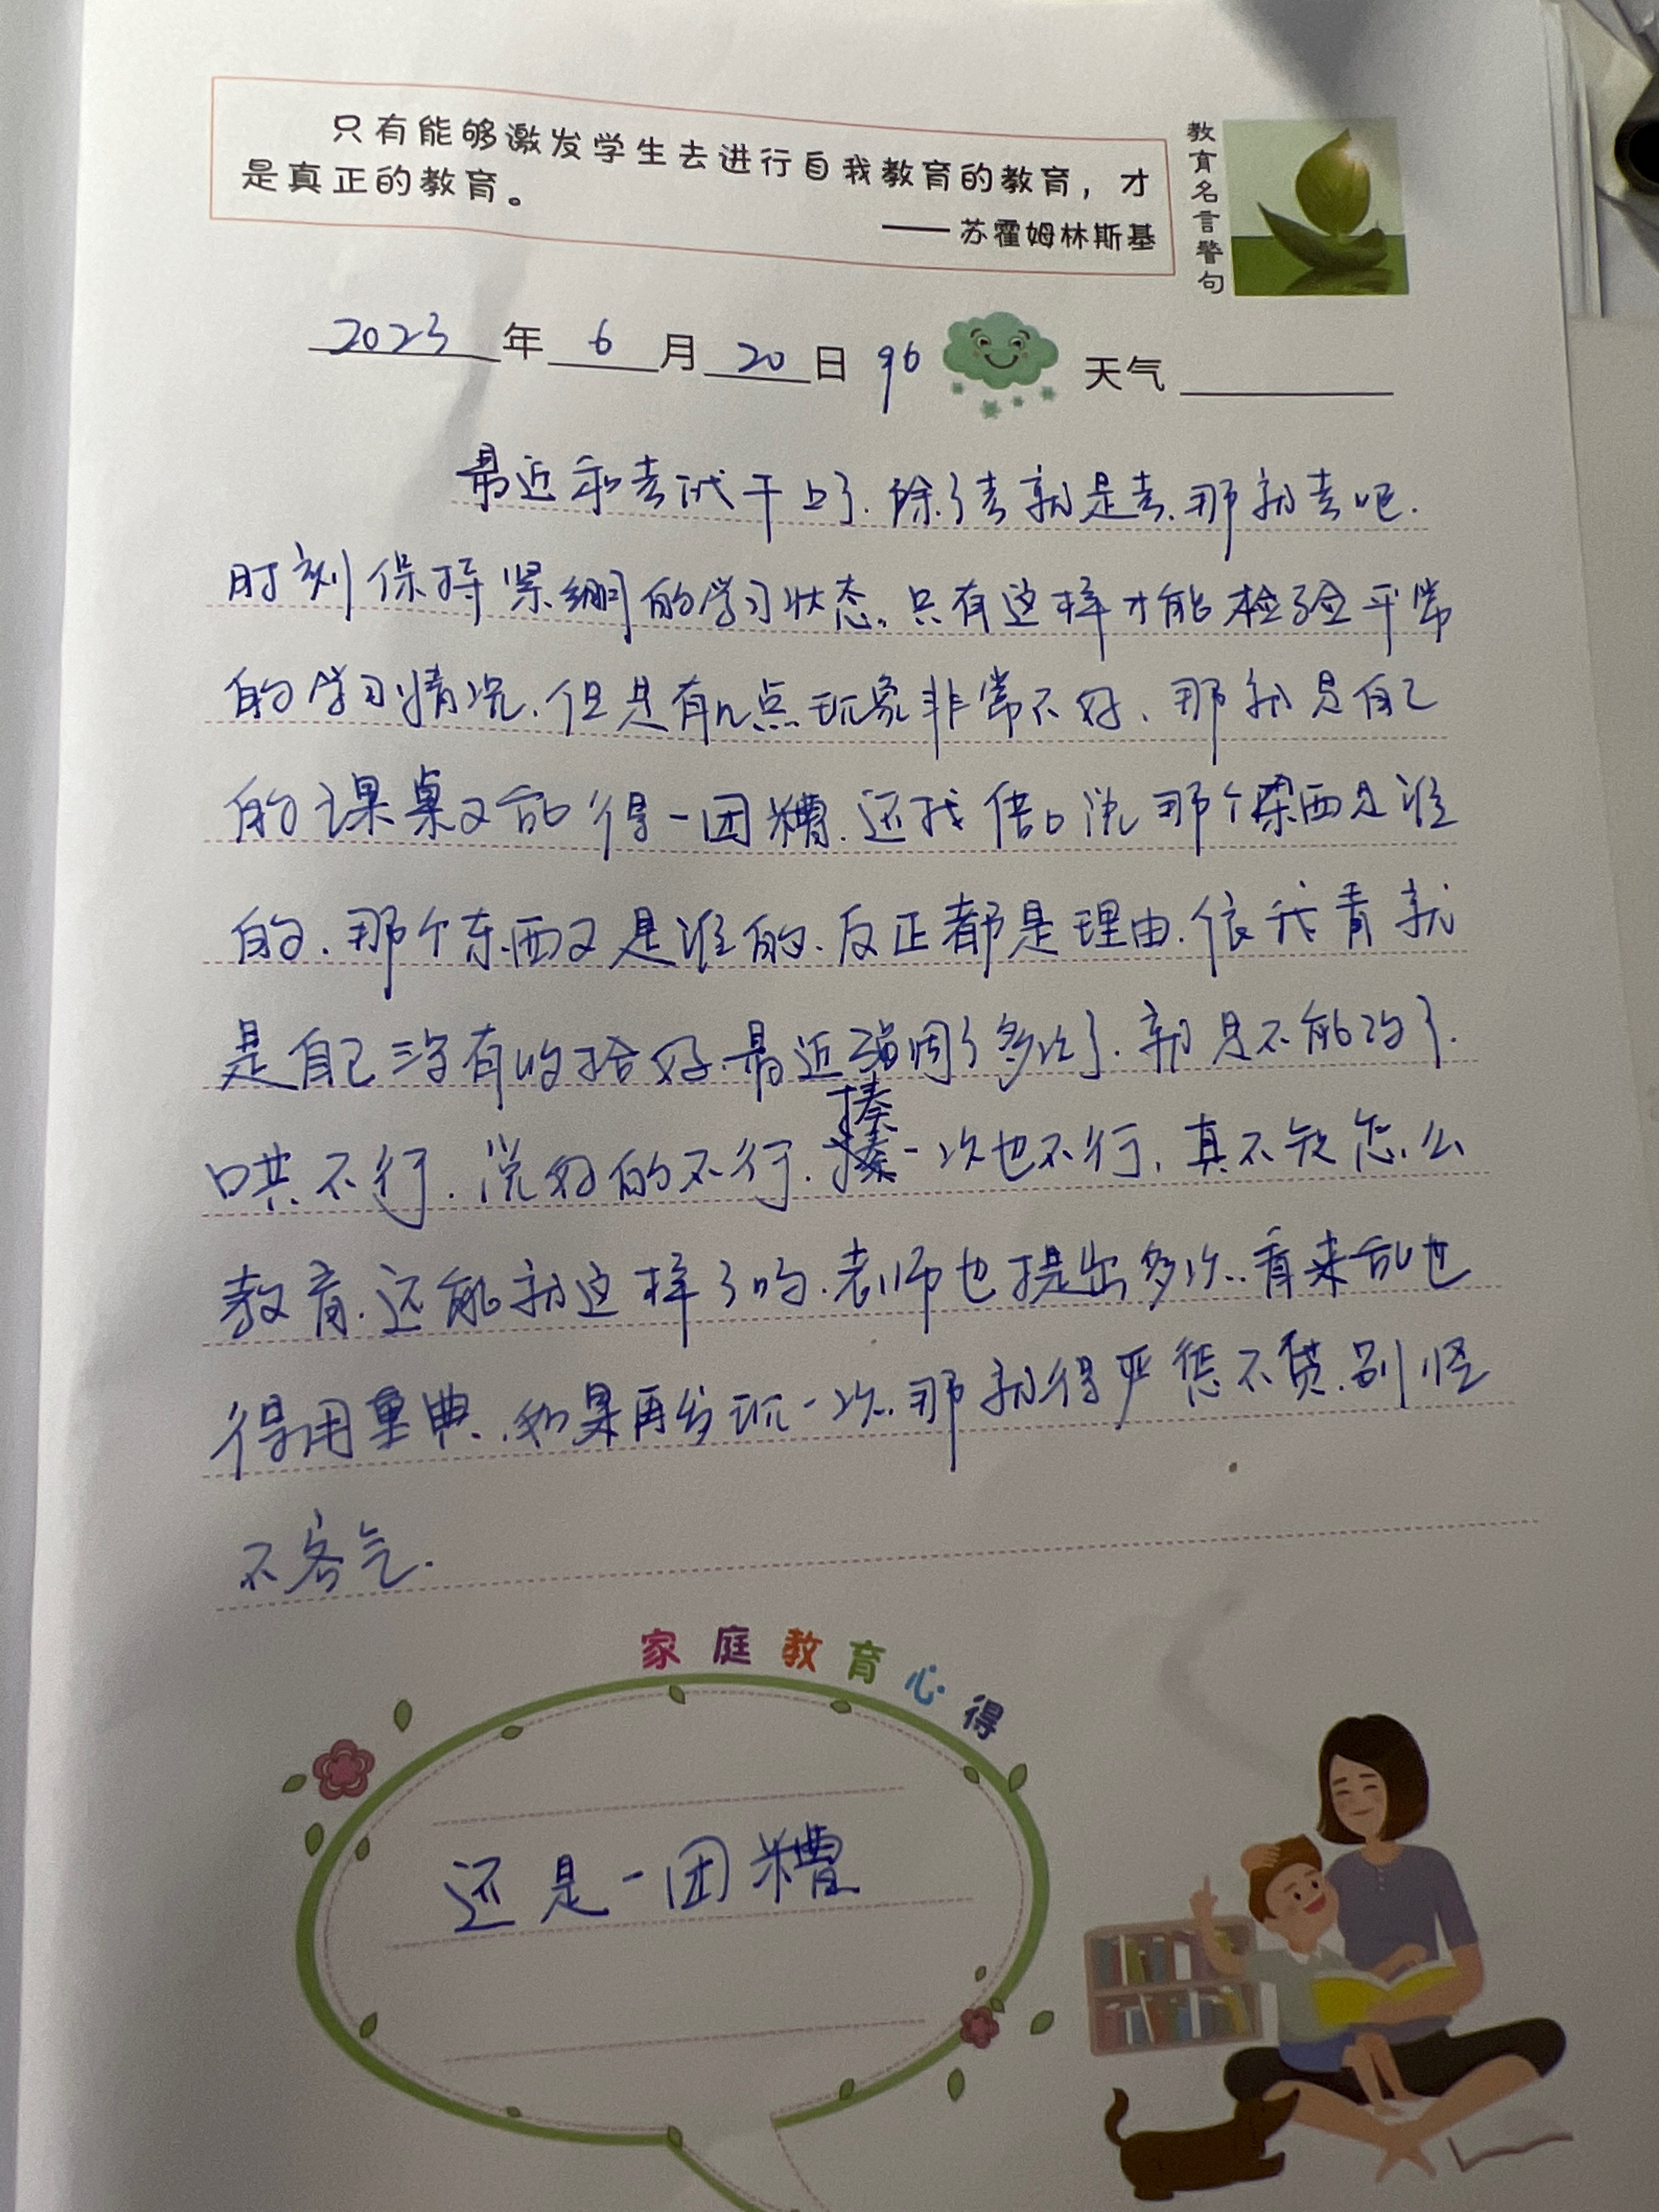 只有能够激发学生去进行自我教育的教育，才
是真正的教育。
——苏霍姆林斯基
教育名言警句
2023年6月20日 96 天气
最近和考试干上了.除了考就是考.那就考吧.
时刻保持紧绷的学习状态.只有这样才能检验平常
的学习情况.但是有几点现象非常不好.那就是自己
的课桌又乱得一团糟.还找借口说那个东西是谁
的.那个东西又是谁的.反正都是理由.依我看就
是自己没有收拾好.最近强调了多次了.就是不能改了.
哄不行.说好的不行.揍一次也不行.真不知怎么
教育.还能就这样了吗.老师也提出多次.看来乱世
得用重典.如果再发现一次.那就得严惩不贷.别怪
不客气.
家庭教育心得
还是一团糟